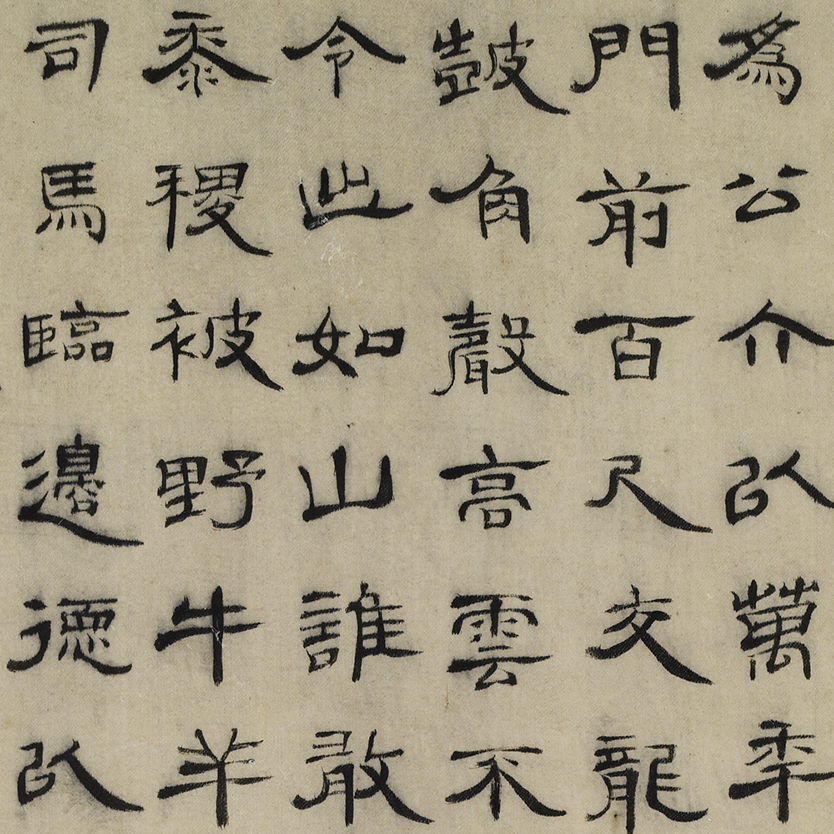 爲公介以萬秊
門前百尺交龍
皷角聲高雲不
令此如山誰敢
黍稷被野牛羊
司馬臨邊德以